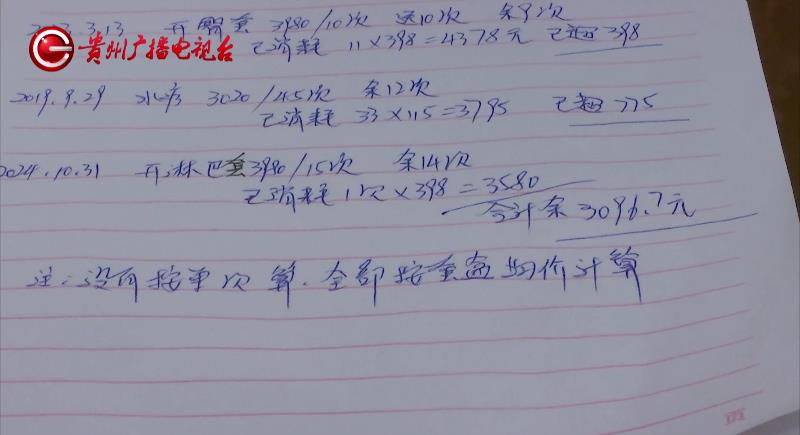 3.13 开 套 3980/10次 送10次 余9次
贵州广播电视台
已消耗 11×398=4378元 已超398
2019.9.29 水疗 3020/45次 余12次
已消耗 33×115=3795 已超775
2024.10.31 开淋巴套3980/15次 余14次
已消耗 1次×398=3580
合计余3096.7元
注:没有按单次算.全部按套盒均价计算